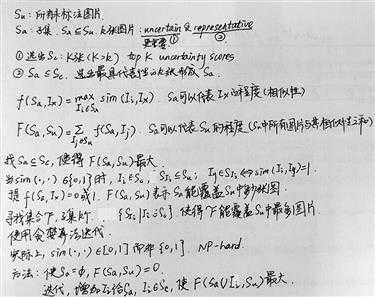 Su: 所有未标注图片.
Sa: 子集. Sa ⊆ Su. k张图片: uncertain & representative
更重要① ②
① 选出 Sc: K张 (K>k). top K uncertainty scores
② Sa ⊆ Sc. 选出最具代表性的k张形成 Sa.
f(Sa, Ix) = max sim(Ii, Ix). Sa可以代表 Ix 的程度 (相似性)
Ii∈Sa
F(Sa, Su) = Σ f(Sa, Ij). Sa可以代表 Su 的程度 (Su中所有图片与其相似性之和)
Ij∈Su
找 Sa ⊆ Sc, 使得 F(Sa, Su) 最大.
当 sim(·,·) ∈ {0,1} 时, Ii ∈ Sc, SIi ⊆ Su; Iy ∈ SIi ⟺ sim(Ii, Iy)=1.
f(Sa, Ix) = 0或1. F(Sa, Su) 表示 Sa 能覆盖 Su 中多少张图.
{SIi | Ii ∈ Sc} 使得 T 能覆盖 Su 中最多图片.
使用贪婪算法迭代.
实际上, sim(·,·) ∈ [0,1] 而非 {0,1}. NP-hard.
方法: 使 Sa = ∅, F(Sa, Su) = 0.
迭代, 增加 Ii 给 Sa, Ii ∈ Sc, 使 F(Sa ∪ Ii, Su) 最大.